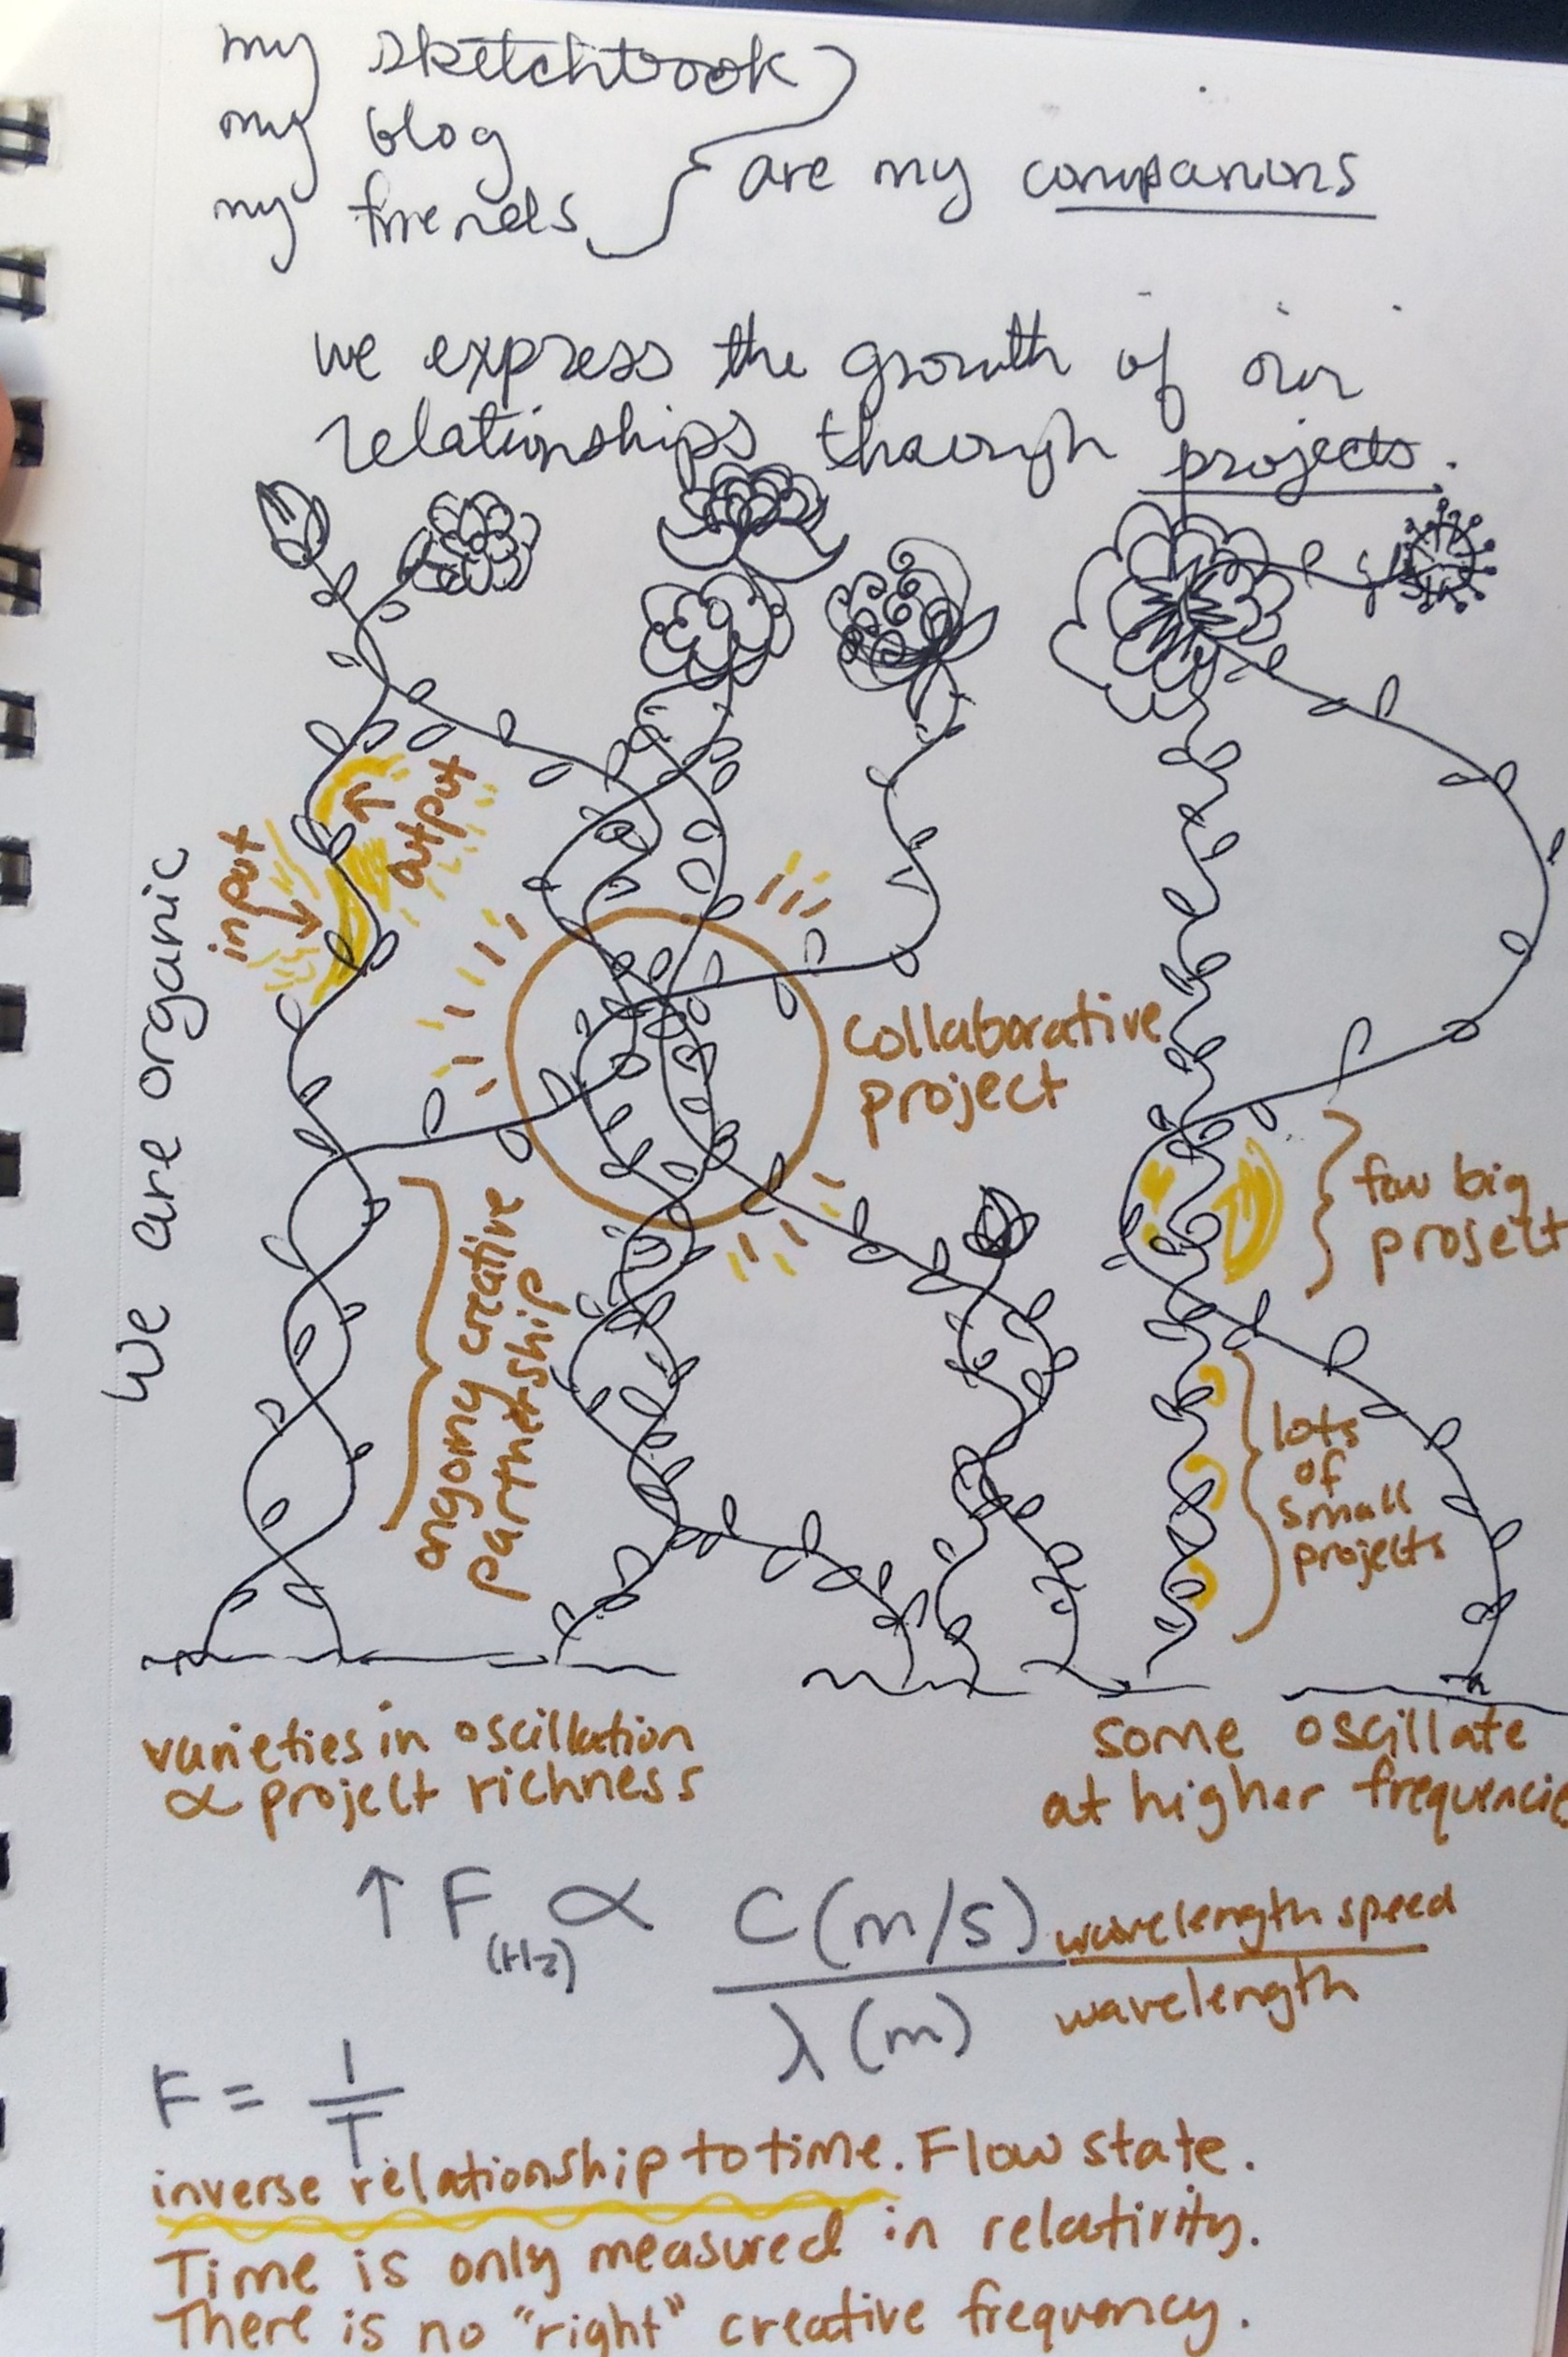 my sketchbook
my blog
my friends
are my companions
we express the growth of our
relationships through projects.
We are organic
input
output
collaborative
project
ongoing creative
partnership
few big
project
lots
of
small
projects
varieties in oscillation
∝ project richness
some oscillate
at higher frequencie
↑ F (Hz) ∝ C (m/s) wavelength speed
λ (m) wavelength
F = 1
T
inverse relationship to time. Flow state.
Time is only measured in relativity.
There is no "right" creative frequency.